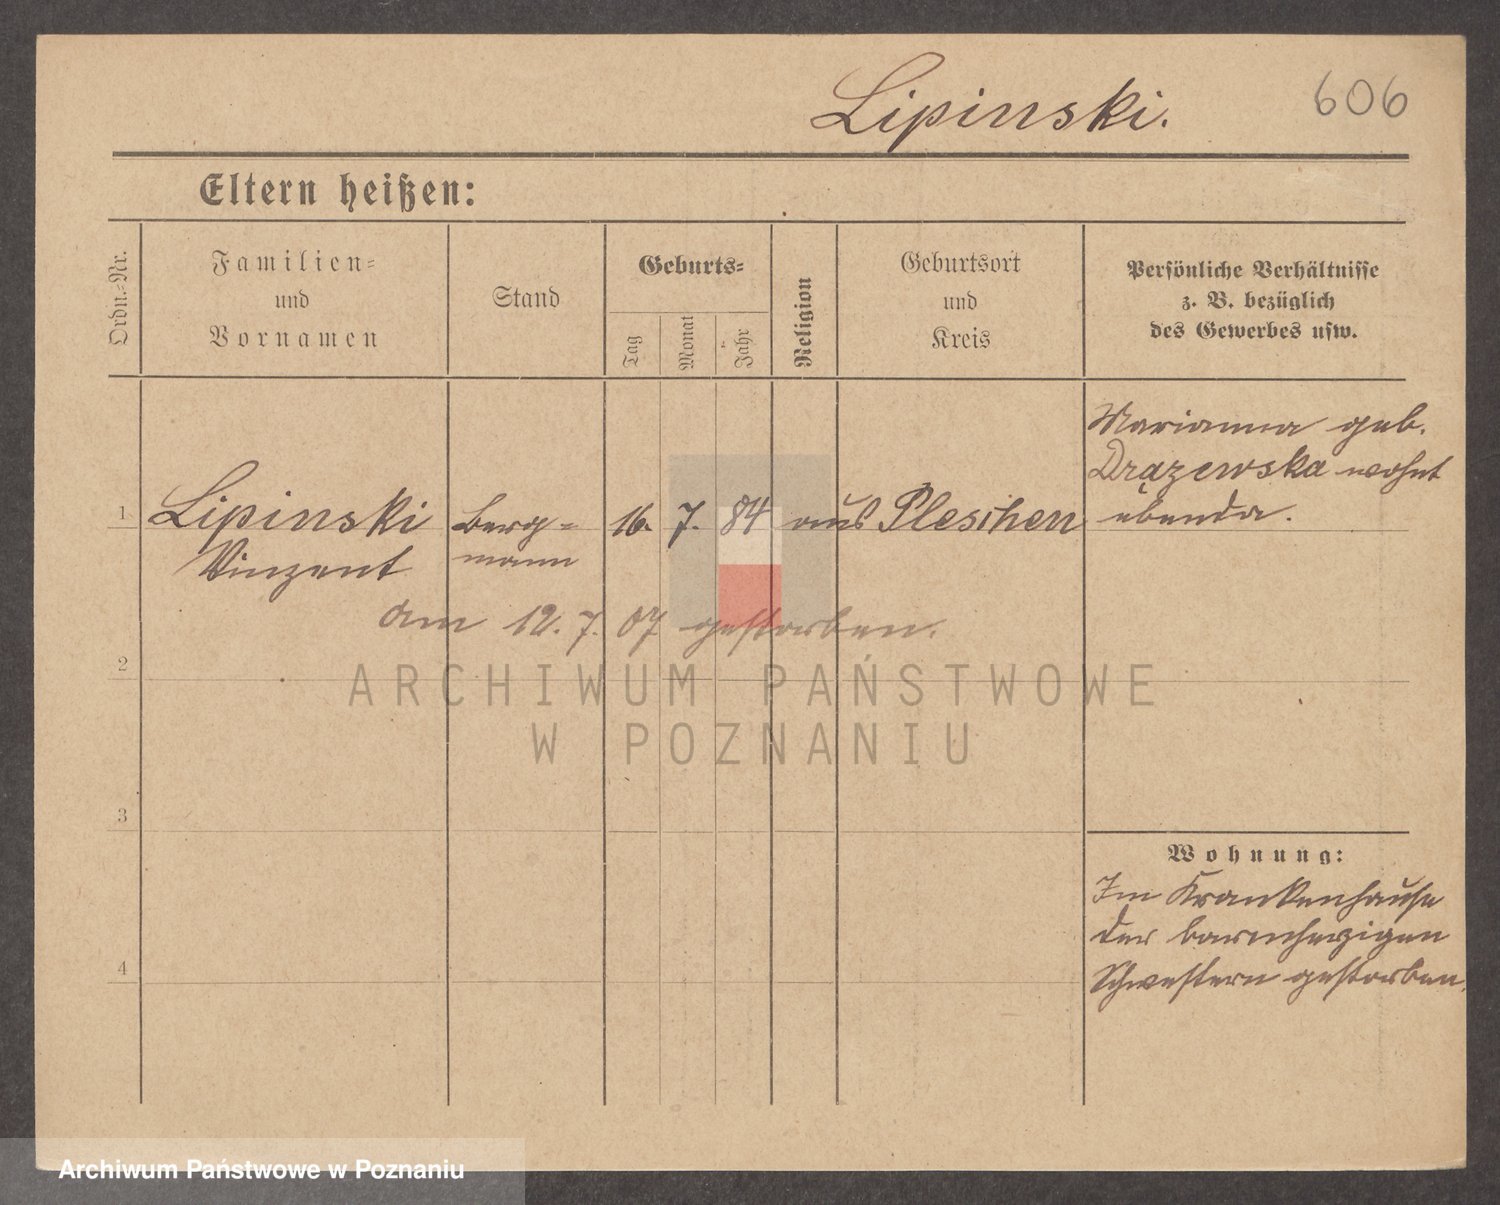 Lipinski.
606
Eltern heißen:
Ordn.-Nr.
Familien-
und
Vornamen
Stand
Geburts-
Tag
Monat
Jahr
Religion
Geburtsort
und
Kreis
Persönliche Verhältnisse
z. B. bezüglich
des Gewerbes usw.
Marianna geb.
Drążewska wohnt
ebenda.
1
Lipinski
Vinzent
Berg-
mann
16.
7.
84
aus Pleschen
am 12. 7. 07 gestorben.
2
ARCHIWUM PAŃSTWOWE
W POZNANIU
3
Wohnung:
Im Krankenhause
der barmherzigen
Schwestern gestorben.
4
Archiwum Państwowe w Poznaniu